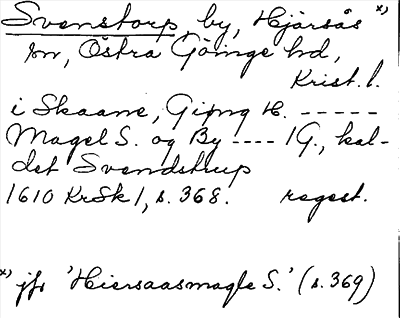 Svenstorp, by, Hjärsås x)
sn, Östra Göinge hd,
Krist. l.
i Skaane, Giøng H. -----
Magel S. og By ---- 1 G., kal-
det Svendstrup
1610 KrSk 1, s. 368. regest.
x) jfr 'Hiersaasmagle S.' (s. 369)